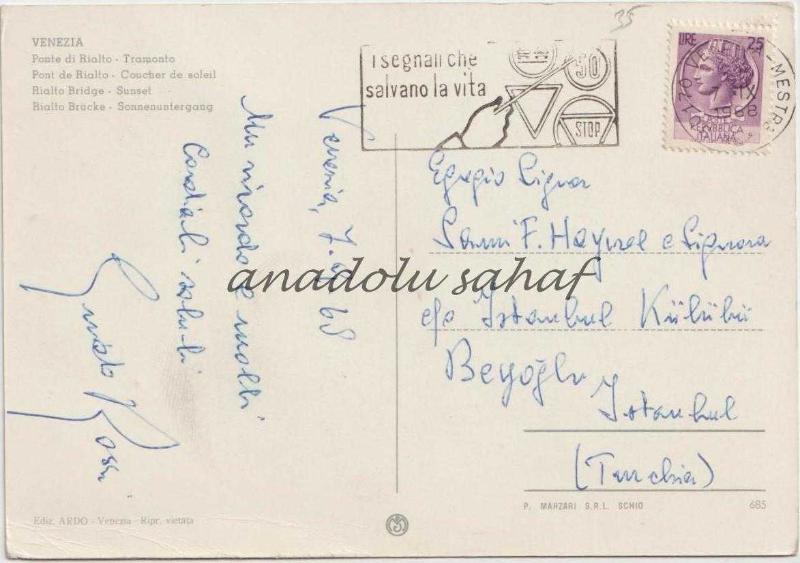 VENEZIA
Ponte di Rialto - Tramonto
Pont de Rialto - Coucher de soleil
Rialto Bridge - Sunset
Rialto Brücke - Sonnenuntergang
Venezia, 7.9.68
Un ricordo e molti
Cordiali saluti
Guido Rossi
Ediz. ARDO - Venezia - Ripr. vietata
35
i segnali che
salvano la vita
50
STOP
LIRE 25
MESTRE
IX
1968
REPVBBLICA
ITALIANA
Egregio Signor
Sami F. Hayzel e Signora
c/o Istanbul Külübü
Beyoğlu
Istanbul
(Turchia)
P. MARZARI S.R.L. SCHIO
685
anadolu sahaf